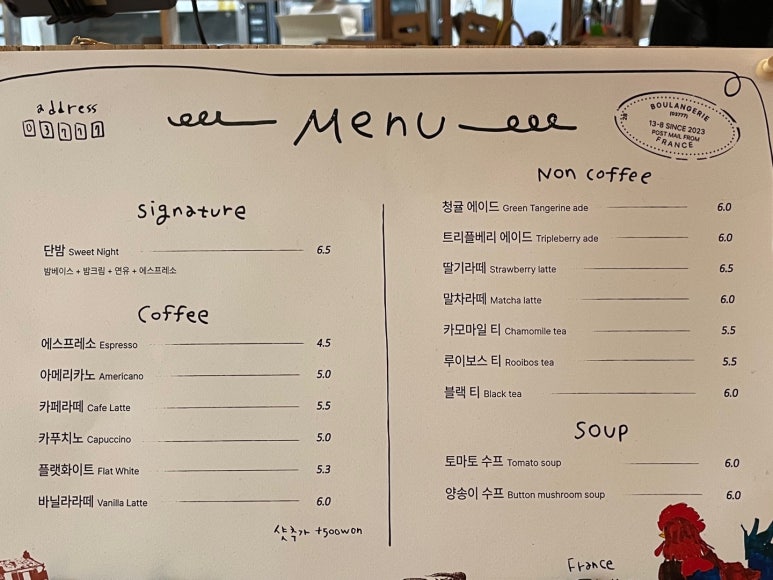 address
03777
Menu
BOULANGERIE
(03777)
13-8 SINCE 2023
POST MAIL FROM
FRANCE
Signature
단밤 Sweet Night 6.5
밤베이스 + 밤크림 + 연유 + 에스프레소
Coffee
에스프레소 Espresso 4.5
아메리카노 Americano 5.0
카페라떼 Cafe Latte 5.5
카푸치노 Capuccino 5.0
플랫화이트 Flat White 5.3
바닐라라떼 Vanilla Latte 6.0
샷추가 +500won
Non coffee
청귤 에이드 Green Tangerine ade 6.0
트리플베리 에이드 Tripleberry ade 6.0
딸기라떼 Strawberry latte 6.5
말차라떼 Matcha latte 6.0
카모마일 티 Chamomile tea 5.5
루이보스 티 Rooibos tea 5.5
블랙 티 Black tea 6.0
Soup
토마토 수프 Tomato soup 6.0
양송이 수프 Button mushroom soup 6.0
France